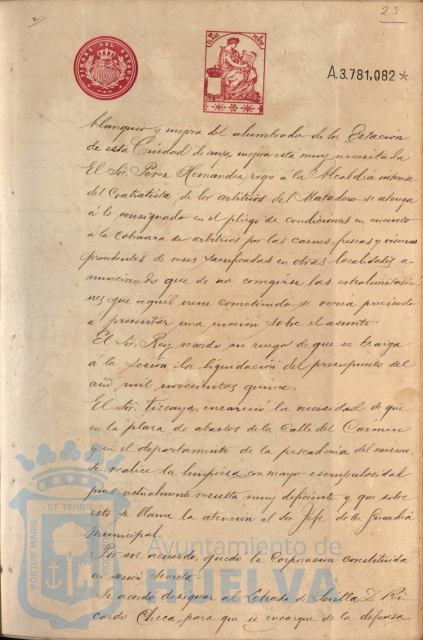 23
TIMBRE DEL ESTADO
A.3.781,082*
blanqueo y mejora del alumbrado de la Estación
de esta Ciudad de cuya mejora está muy necesitada
El Sr. Perez Hernandez rogó a la Alcaldía interese
del Contratista de los arbitrios del Matadero se atenga
á lo consignado en el pliego de condiciones en cuanto
a la cobranza de arbitrios por las carnes frescas y
procedentes de reses sacrificadas en otras localidades a-
nunciando que de no corregirse las extralimitacio
nes que aquél viene cometiendo se vería precisado
a presentar una moción sobre el asunto.
El Sr. Rey recordó su ruego de que se traiga
á la sesión la liquidación del presupuesto del
año mil novecientos quince.
El Sr. encareció la necesidad de que
en la plaza de abastos de la Calle del Carmen
y en el departamento de la pescadería del mismo,
se realice la limpieza con mayor escrupulosidad
pues actualmente resulta muy deficiente y que sobre
esto se llame la atención al Sr. Jefe de la Guardia
Municipal.
Por su acuerdo, quedó la Corporación constituida
en sesión secreta.
Se acordó designar al Letrado de Sevilla D. Ri-
cardo Checa, para que se encargue de la defensa
PORTUS MARIS ET TERRAE
Ayuntamiento de
HUELVA